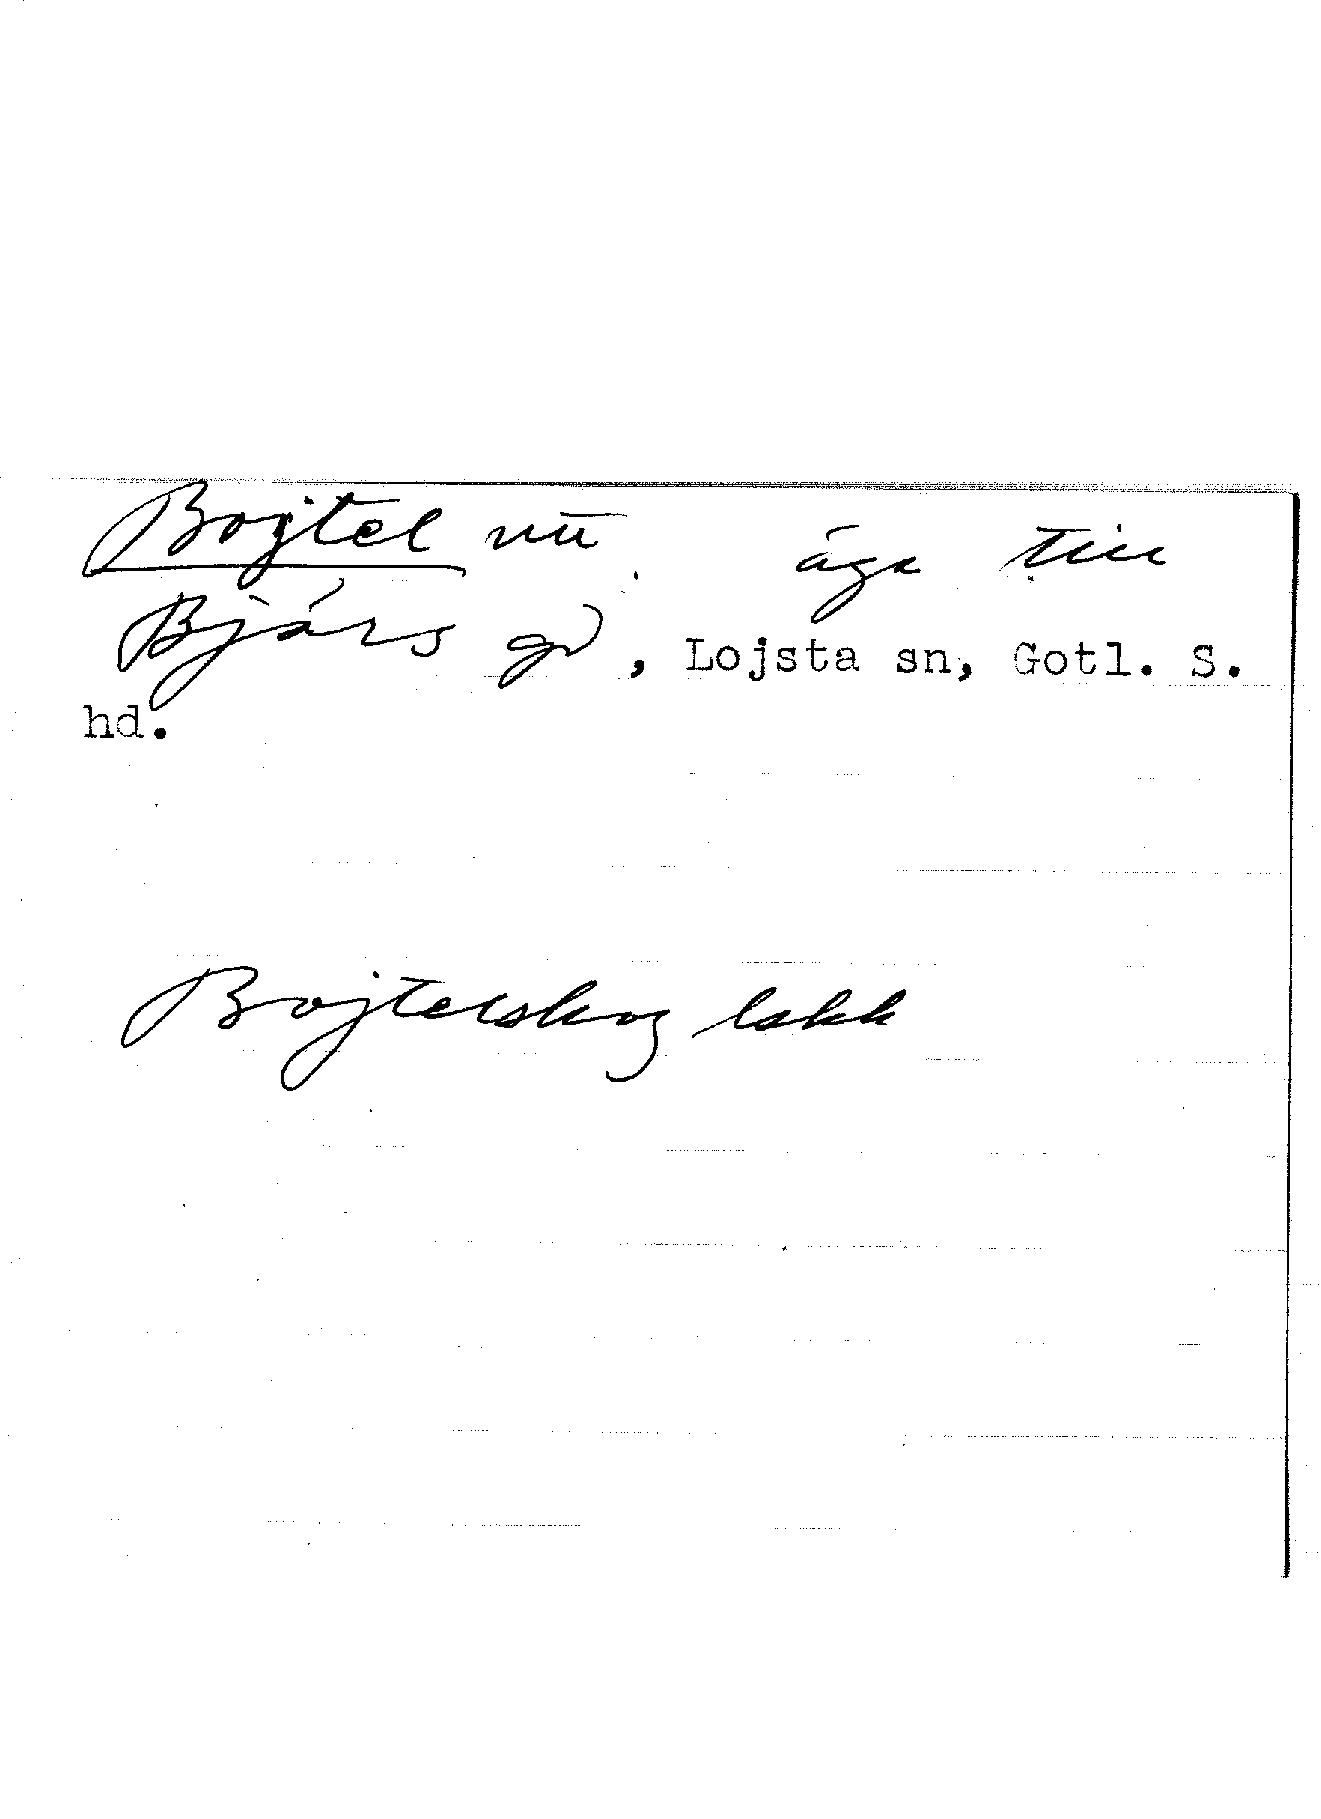 Bojtel nu äga till
Bjärs gd, Lojsta sn, Gotl. S.
hd.
Bojtelskog lskk